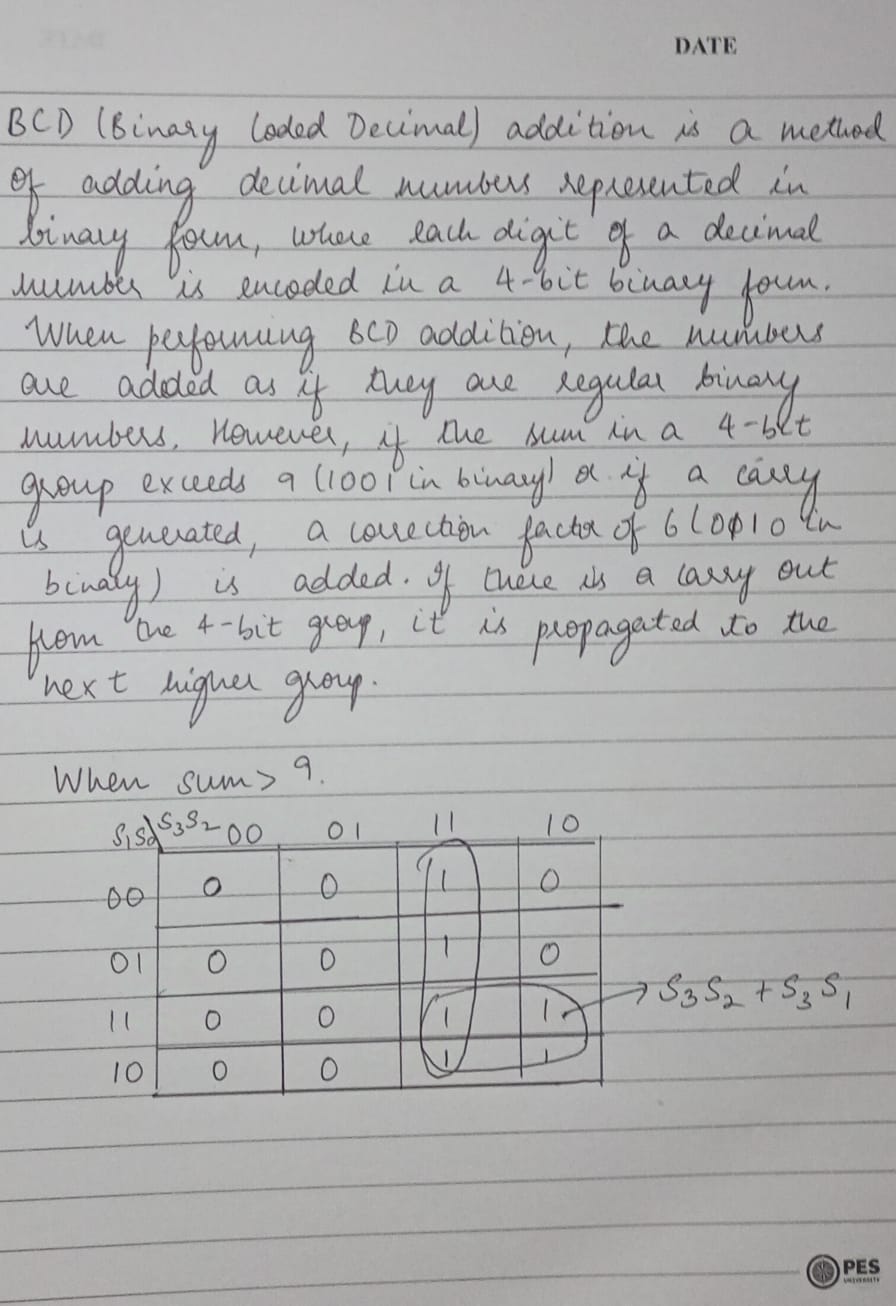 DATE
BCD (Binary Coded Decimal) addition is a method
of adding decimal numbers represented in
binary form, where each digit of a decimal
number is encoded in a 4-bit binary form.
When performing BCD addition, the numbers
are added as if they are regular binary
numbers. However, if the sum in a 4-bit
group exceeds 9 (1001 in binary) or if a carry
is generated, a correction factor of 6 (0110 in
binary) is added. If there is a carry out
from the 4-bit group, it is propagated to the
next higher group.
When sum > 9.
S1S0\S3S2 00 01 11 10
00 0 0 1 0
01 0 0 1 0
11 0 0 1 1 → S3S2 + S3S1
10 0 0 1 1
PES
UNIVERSITY